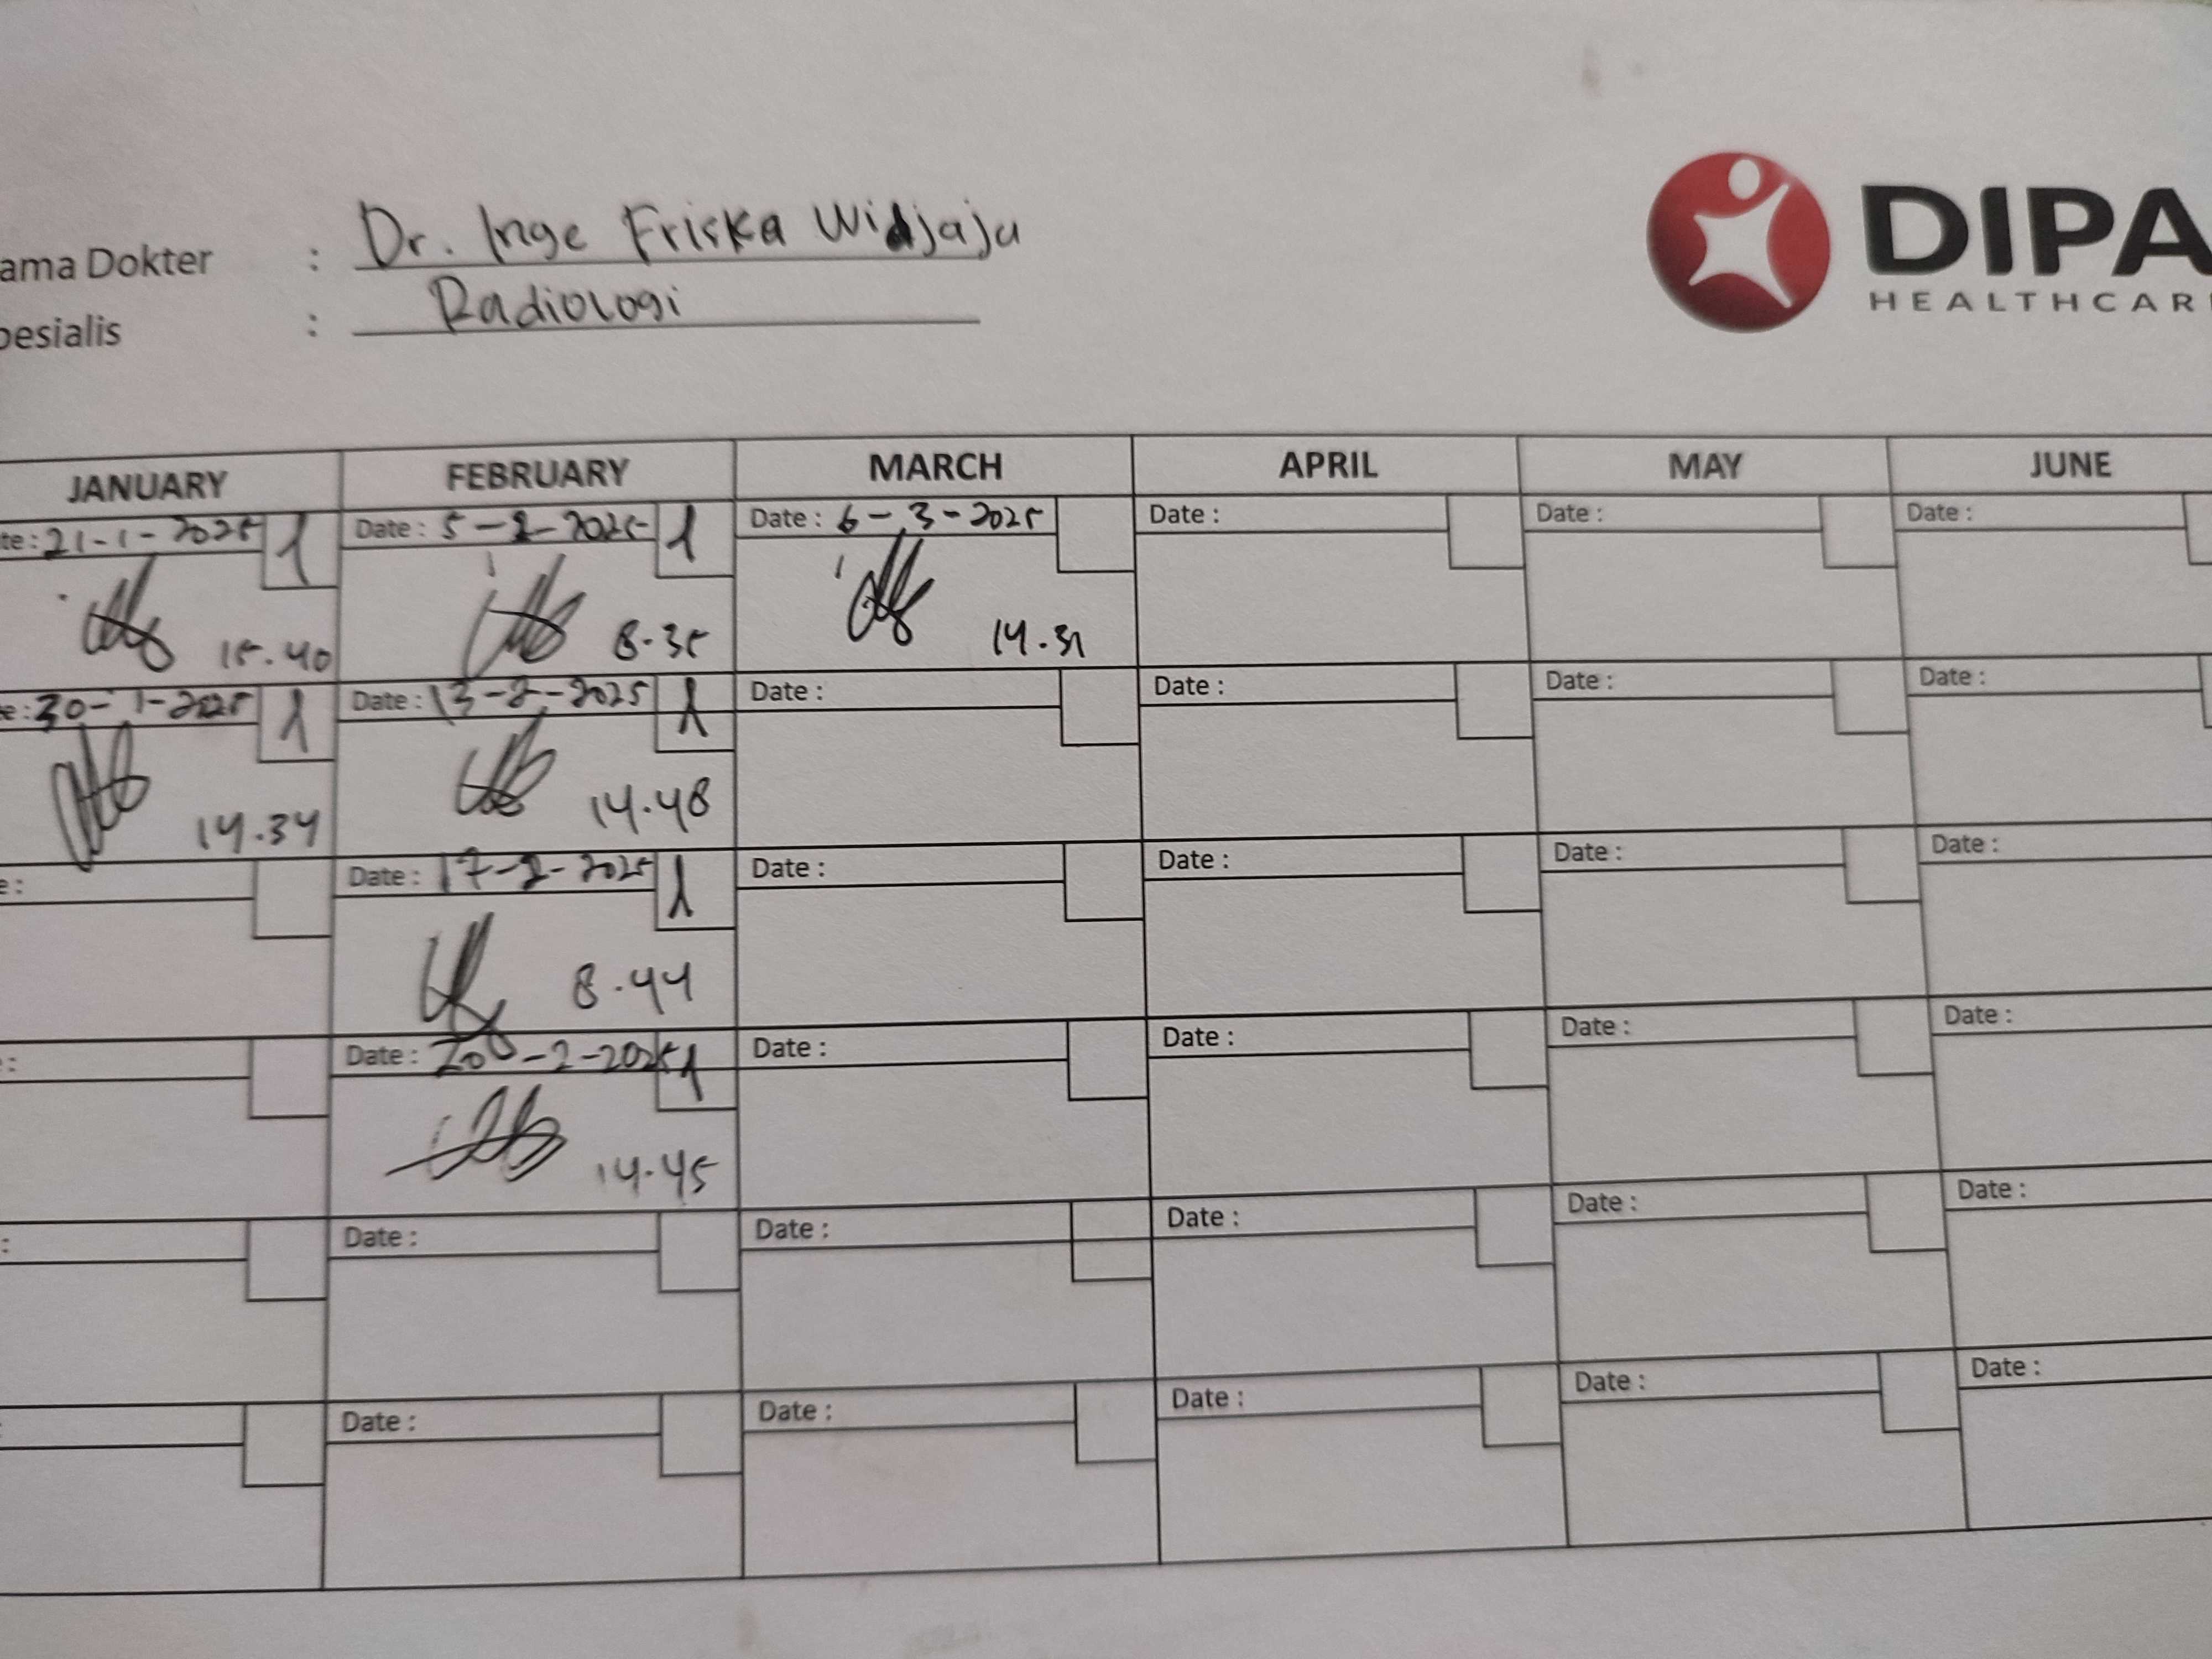 ama Dokter : Dr. Inge Friska Widjaja
pesialis : Radiologi
DIPA
HEALTHCAR
JANUARY FEBRUARY MARCH APRIL MAY JUNE
te: 21-1-2025 1 Date: 5-2-2025 1 Date: 6-3-2025 Date: Date: Date:
15.40 8.35 14.31
e: 30-1-2025 1 Date: 13-2-2025 1 Date: Date: Date: Date:
14.34 14.48
e: Date: 17-2-2025 1 Date: Date: Date: Date:
8.44
: Date: 20-2-2025 1 Date: Date: Date: Date:
14.45
: Date: Date: Date: Date: Date:
Date: Date: Date: Date: Date: